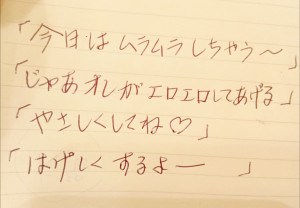 「今日はムラムラしちゃう～」
「じゃあオレがエロエロしてあげる」
「やさしくしてね♡」
「はげしくするよー　」